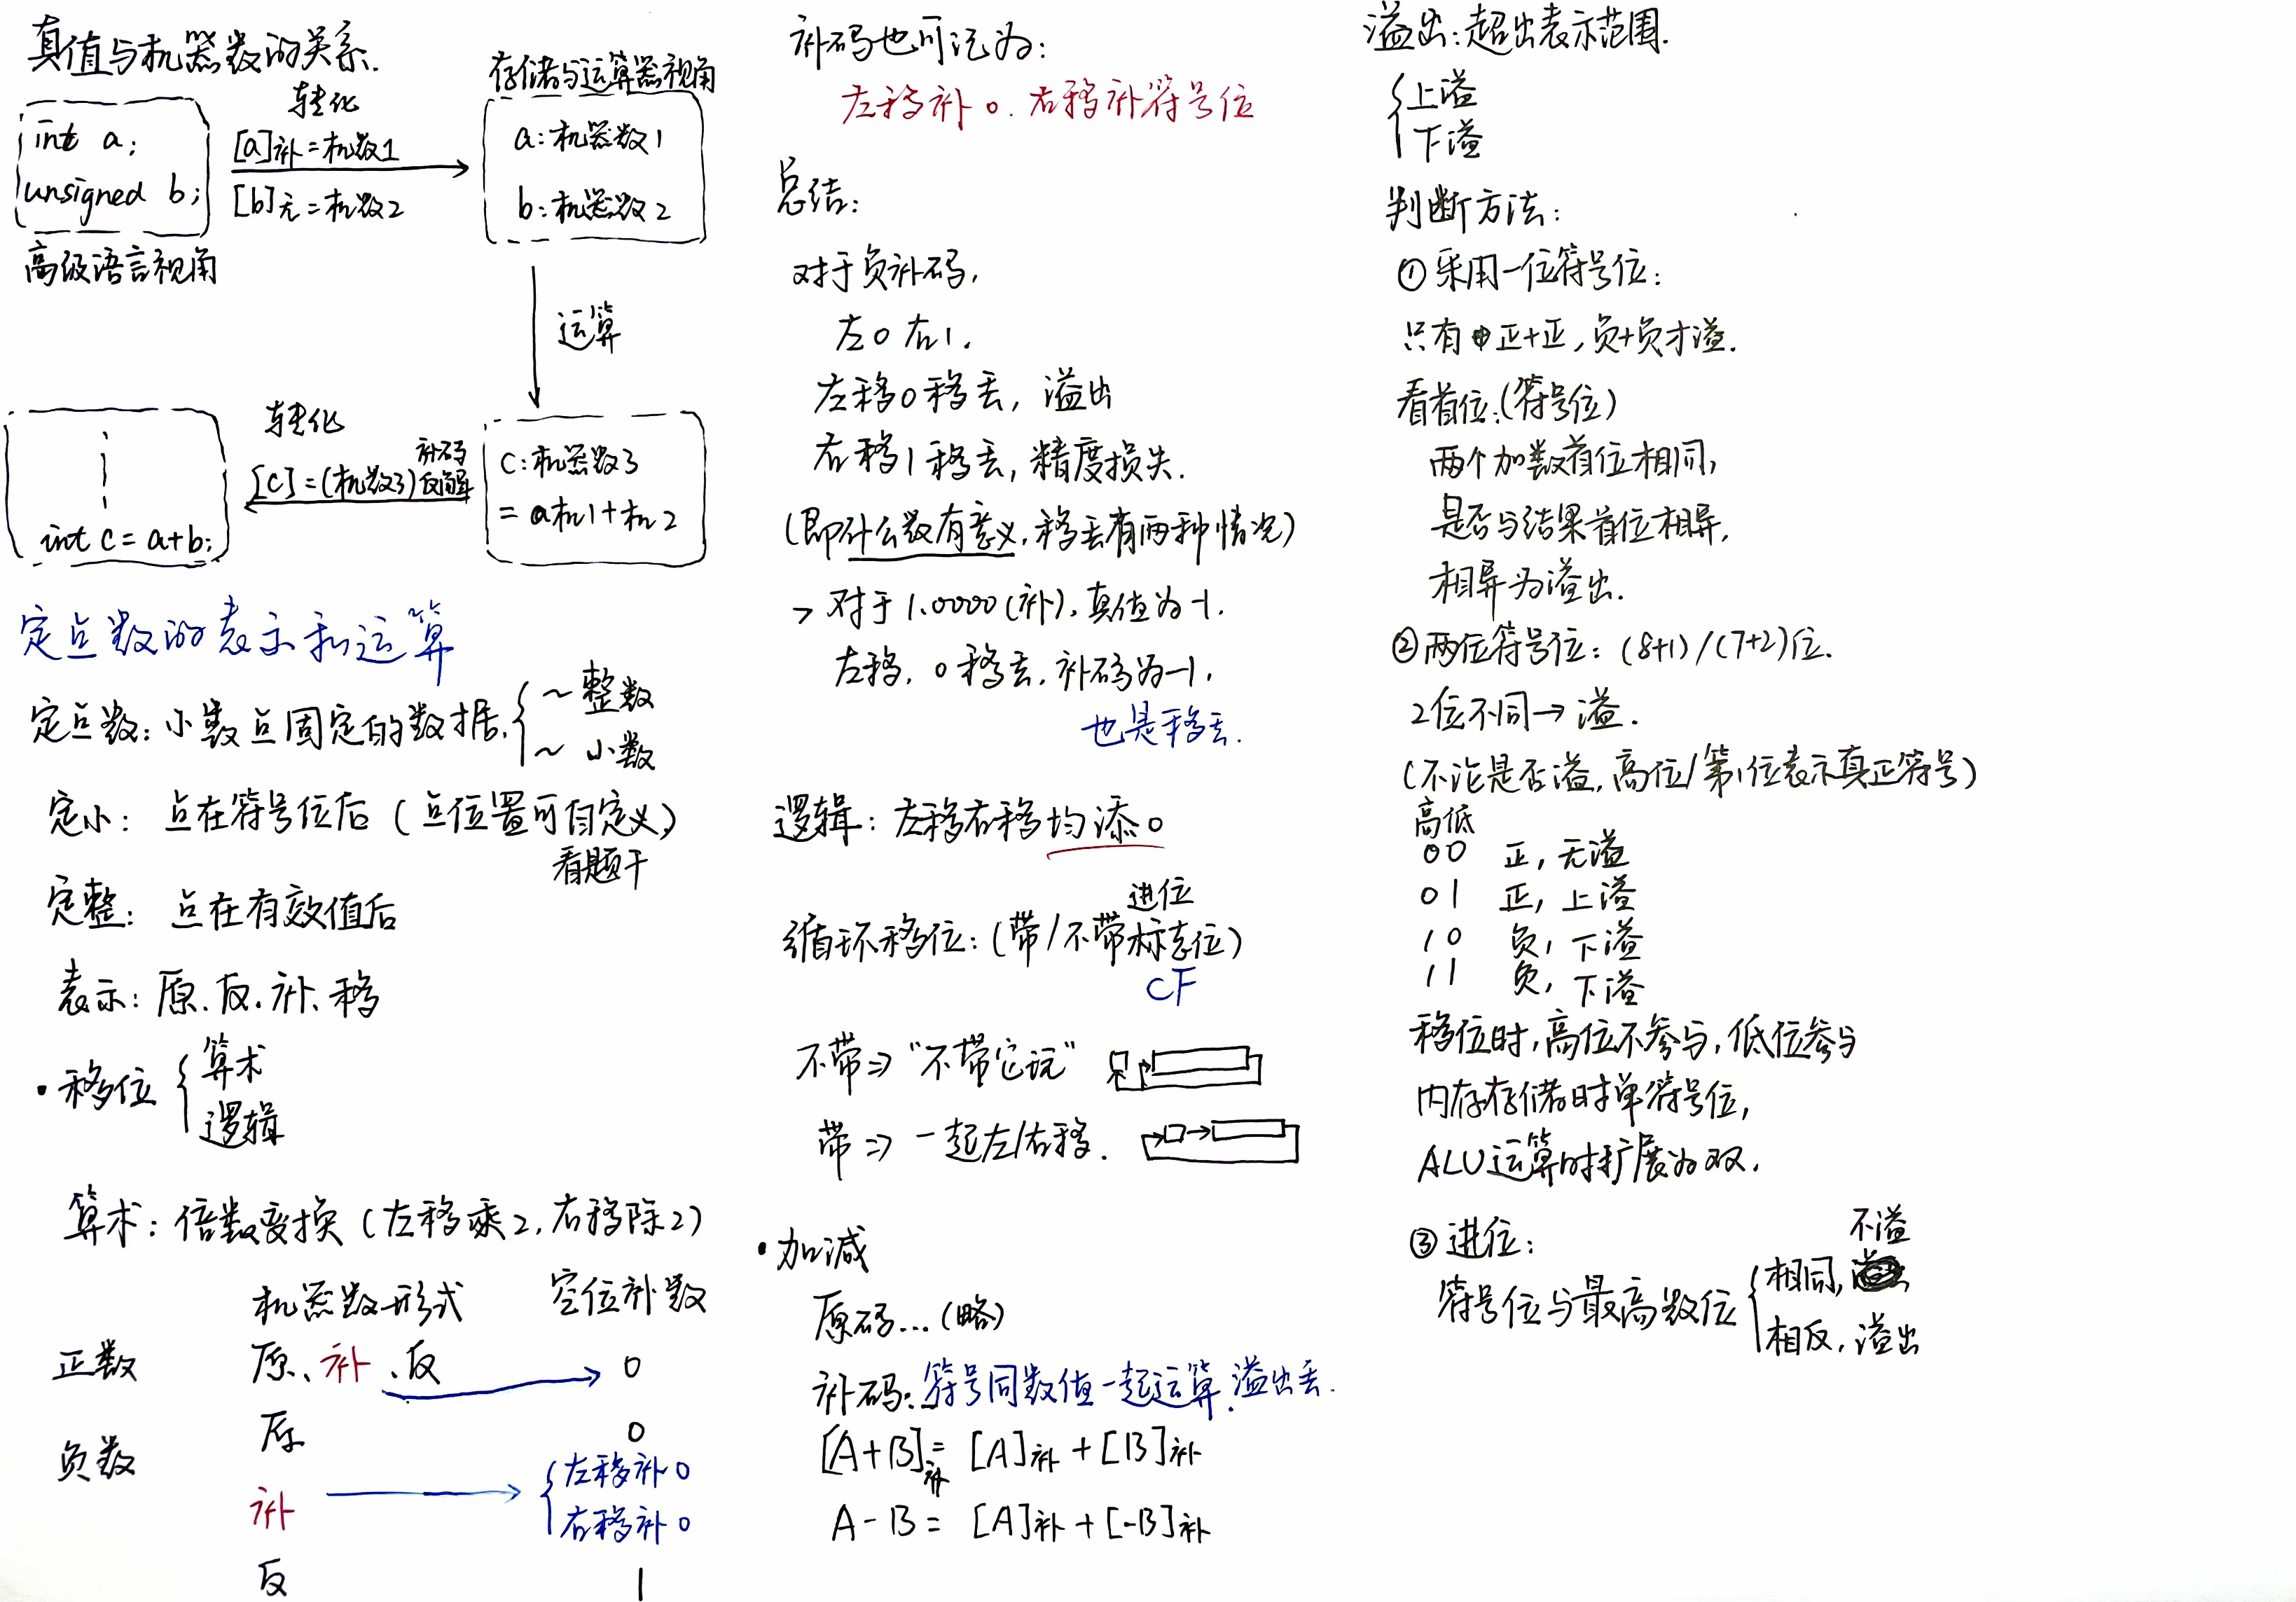 真值与机器数的关系.
存储与运算器视角
int a;
unsigned b;
高级语言视角
转化
[a]补=机数1
[b]无=机数2
a:机器数1
b:机器数2
运算
int c = a+b;
转化
[c]=(机数3)补码反解
c:机器数3
= a机1+机2
定点数的表示和运算
定点数:小数点固定的数据.
~整数
~小数
定小: 点在符号位后(点位置可自定义)
看题干
定整: 点在有效值后
表示:原.反.补.移
·移位
算术
逻辑
算术:倍数变换(左移乘2,右移除2)
机器数形式 空位补数
正数 原、补、反 0
负数 原 0
补 左移补0
右移补0
反 1
补码也可记为:
左移补0.右移补符号位
总结:
对于负补码,
左0右1.
左移0移丢,溢出
右移1移丢,精度损失.
(即什么数有意义,移丢有两种情况)
> 对于1.0000(补),真值为-1.
左移,0移丢,补码为-1,
也是移丢.
逻辑:左移右移均添0
进位
循环移位:(带/不带标志位)
CF
不带⇒“不带它玩”
带⇒一起左/右移.
·加减
原码...(略)
补码:符号同数值一起运算.溢出丢.
[A+B]补= [A]补+[B]补
A-B= [A]补+[-B]补
溢出:超出表示范围.
上溢
下溢
判断方法:
①采用一位符号位:
只有正+正,负+负才溢.
看首位:(符号位)
两个加数首位相同,
是否与结果首位相异,
相异为溢出.
②两位符号位:(8+1)/(7+2)位.
2位不同→溢.
(不论是否溢,高位/第1位表示真正符号)
高低
00 正,无溢
01 正,上溢
10 负,下溢
11 负,下溢
移位时,高位不参与,低位参与
内存存储时单符号位,
ALU运算时扩展为双.
③进位:
不溢
符号位与最高数位
相同,
相反,溢出